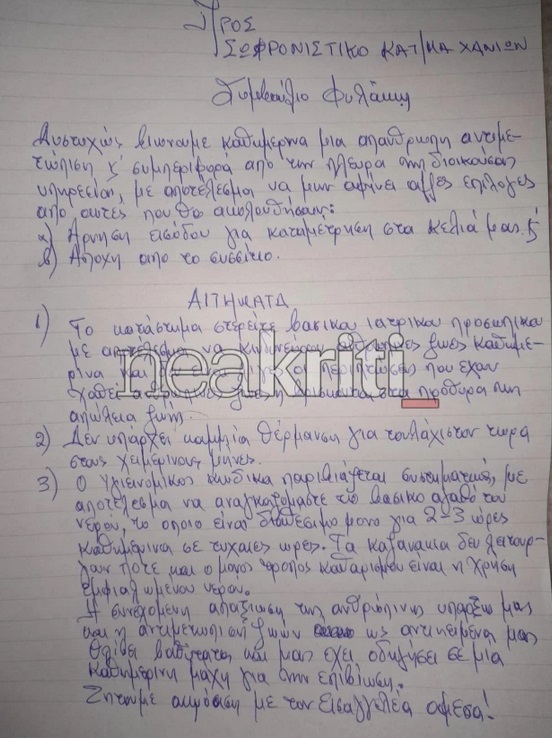 Προς
ΣΩΦΡΟΝΙΣΤΙΚΟ ΚΑΤ/ΜΑ ΧΑΝΙΩΝ
Συμβούλιο Φυλακής
Δυστυχώς βιώνουμε καθημερινα μια απανθρωπη αντιμε-
τώπιση ς' συμπεριφορά από την πλευρα της διοικούσας
υπηρεσίας, με αποτέλεσμα να μην αφήνει αλλες επιλογες
απο αυτες που θα ακολουθήσουν:
α) Αρνηση εισόδου για καταμέτρηση στα κελιά μας. ς'
β) Αποχη απο το συσσίτιο.
ΑΙΤΗΜΑΤΑ
1) Το κατάστημα στερείτε βασικου ιατρικου προσωπικου
με αποτέλεσμα να κινδυνεύουν ζωες καθημε-
ρινα και οι περιπτώσεις που εχαν
χαθει στα πρόθυρα της
απώλεια ζωής.
2) Δεν υπάρχει καμμία θέρμανση για τουλάχιστον τωρα
στους χειμερινους μηνες.
3) Ο Υγιεινομικος κωδικα παραβιάζεται συστηματικά, με
αποτέλεσμα να αναγκαζομαστε το βασικο αγαθο του
νερου, το οποιο ειναι διαθεσιμο μονο για 2-3 ώρες
καθημερινα σε τυχαιες ωρες. Τα καζανακια δεν λειτουρ-
γουν ποτε και ο μονος τροπος καθαρισμου ειναι η χρηση
εμφιαλωμενου νερου.
Η συνεχομενη απαξιωση της ανθρώπινης υπαρξης μας
και η αντιμετωπιση ζωων ως αντικειμενα μας
θλιβει βαθυτατα και μας εχει οδηγησει σε μια
καθημερινη μαχη για την επιβιωση.
Ζητουμε ακροαση με τον Εισαγγελέα αμεσα!
neakriti_